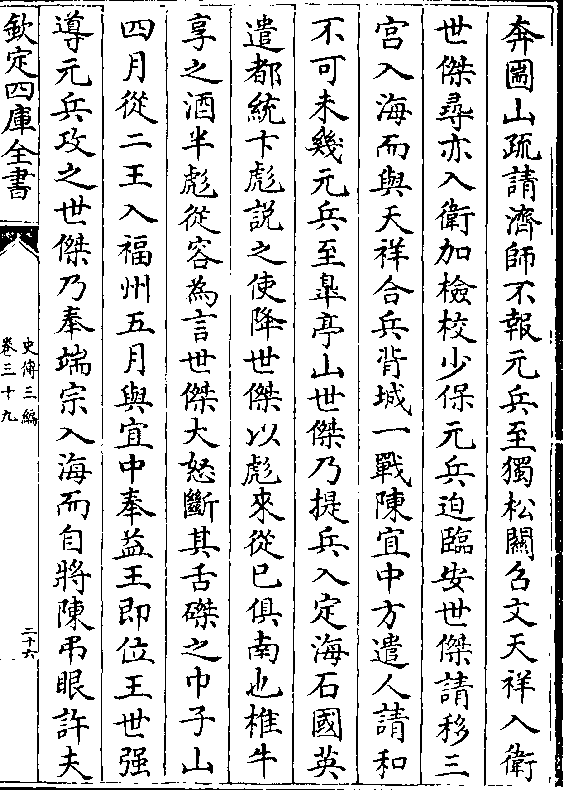 奔圌山疏請濟師不報元兵至獨松關召文天祥入衛
世傑尋亦入衛加檢校少保元兵迫臨安世傑請移三
宮入海而與天祥合兵背城一戰陳宜中方遣人請和
不可未幾元兵至臯亭山世傑乃提兵入定海石國英
遣都統卞彪說之使降世傑以彪來從已俱南也椎牛
享之酒半彪從容為言世傑大怒斷其舌磔之巾子山
四月從二王入福州五月與宜中奉益王即位王世强
導元兵攻之世傑乃奉端宗入海而自將陳弔眼許夫
欽定四庫全書
史傳三編
卷三十九
二十六